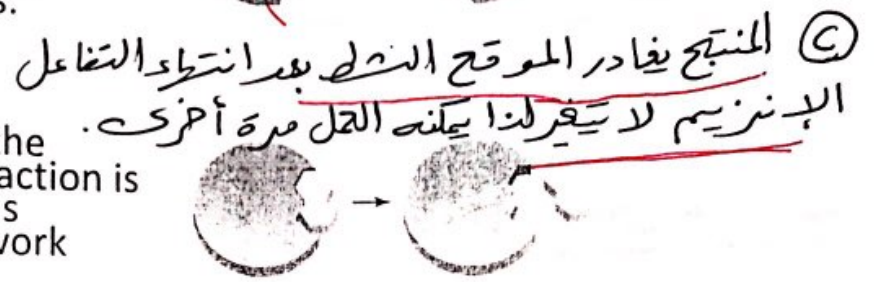 s.
Ⓒ المنتج يغادر الموقع النشط بعد انتهاء التفاعل
الإنزيم لا يتغير لذا يمكنه العمل مرة أخرى.
the
action is
s
work